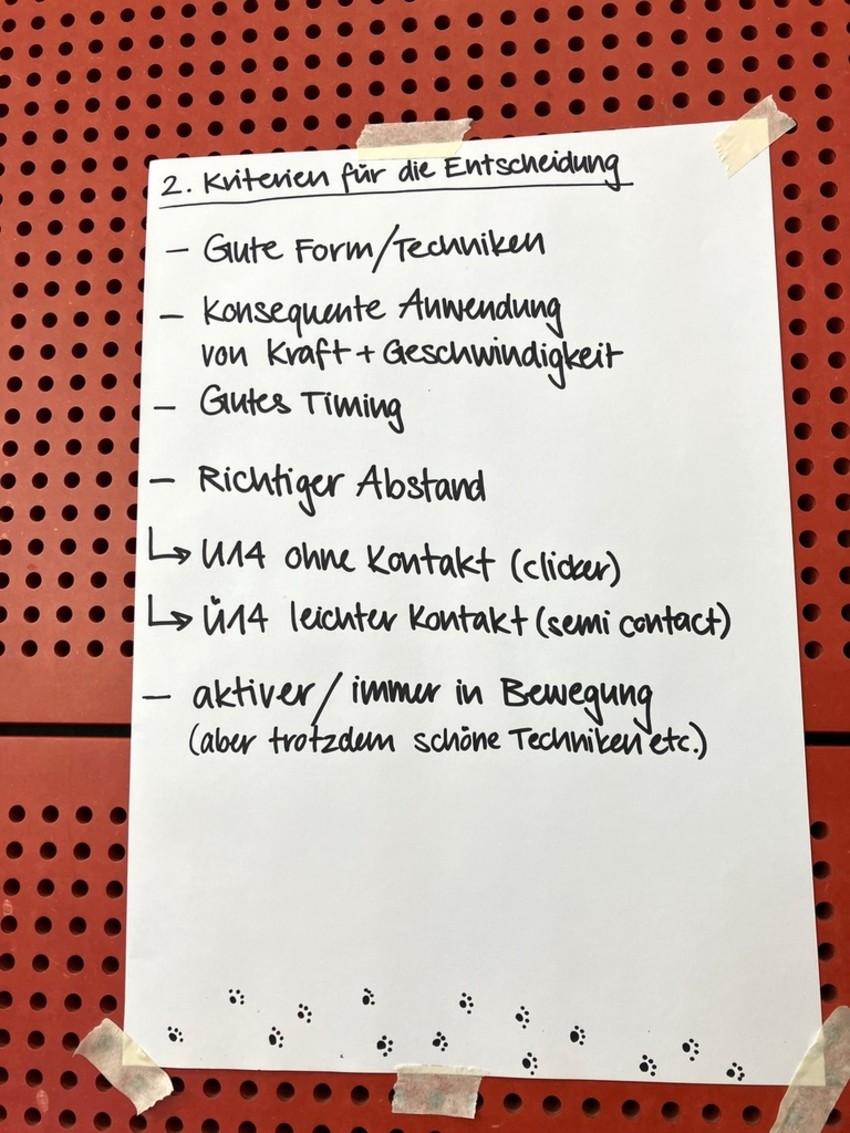 2. Kriterien für die Entscheidung
– Gute Form/Techniken
– Konsequente Anwendung
von Kraft + Geschwindigkeit
– Gutes Timing
– Richtiger Abstand
↳ U14 ohne Kontakt (clicker)
↳ Ü14 leichter Kontakt (semi contact)
– aktiver / immer in Bewegung
(aber trotzdem schöne Techniken etc.)